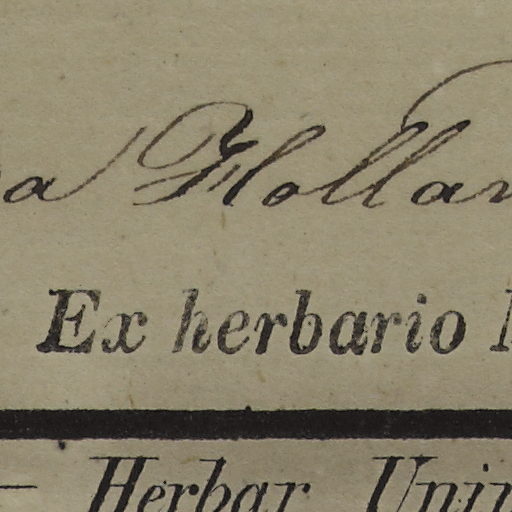 a Hollan
Ex herbario
— Herbar. Univ